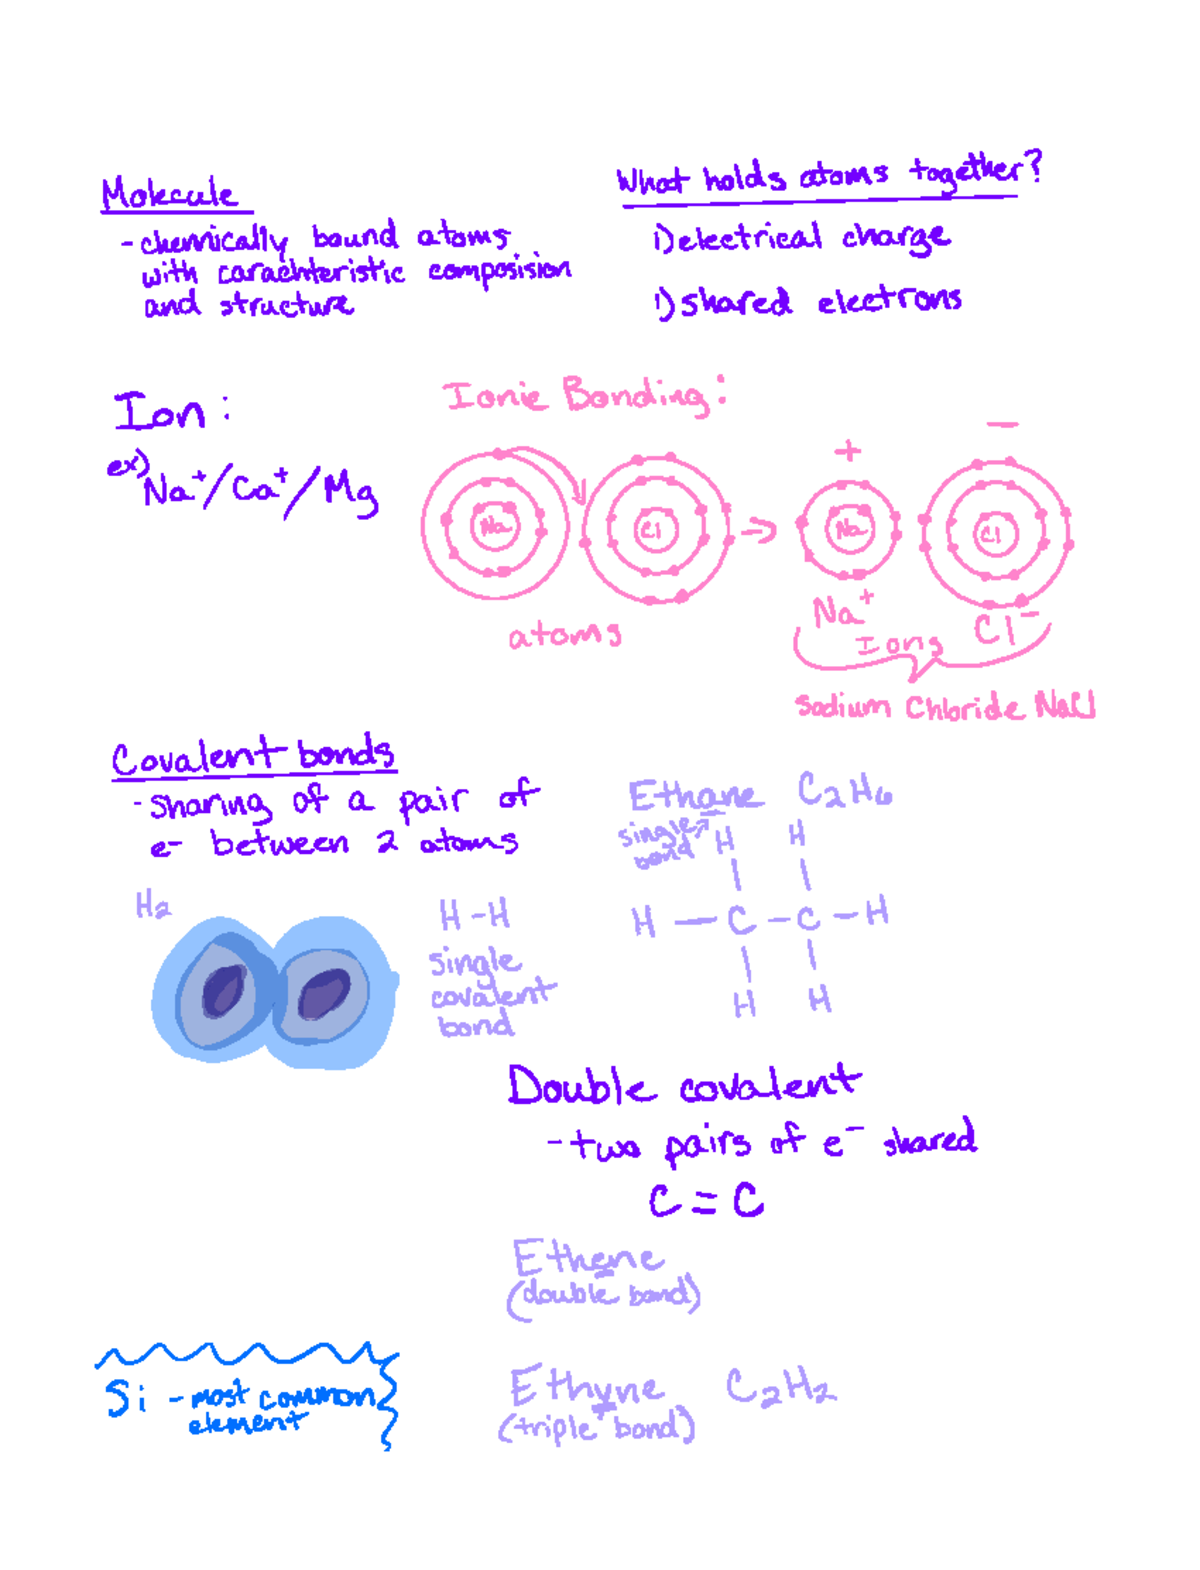 Molecule
- chemically bound atoms
with carachteristic composision
and structure
What holds atoms together?
1) electrical charge
1) shared electrons
Ion :
ex) Na⁺/Ca⁺/Mg
Ionic Bonding:
Na
Cl
atoms
+
Na
Na⁺
−
Cl
Cl⁻
Ions
Sodium Chloride NaCl
Covalent bonds
- sharing of a pair of
e⁻ between 2 atoms
H₂
H-H
single
covalent
bond
Ethane C₂H₆
single
bond
H H
H — C - C - H
H H
Double covalent
- two pairs of e⁻ shared
C = C
Ethene
(double bond)
Ethyne C₂H₂
(triple bond)
Si - most common
element